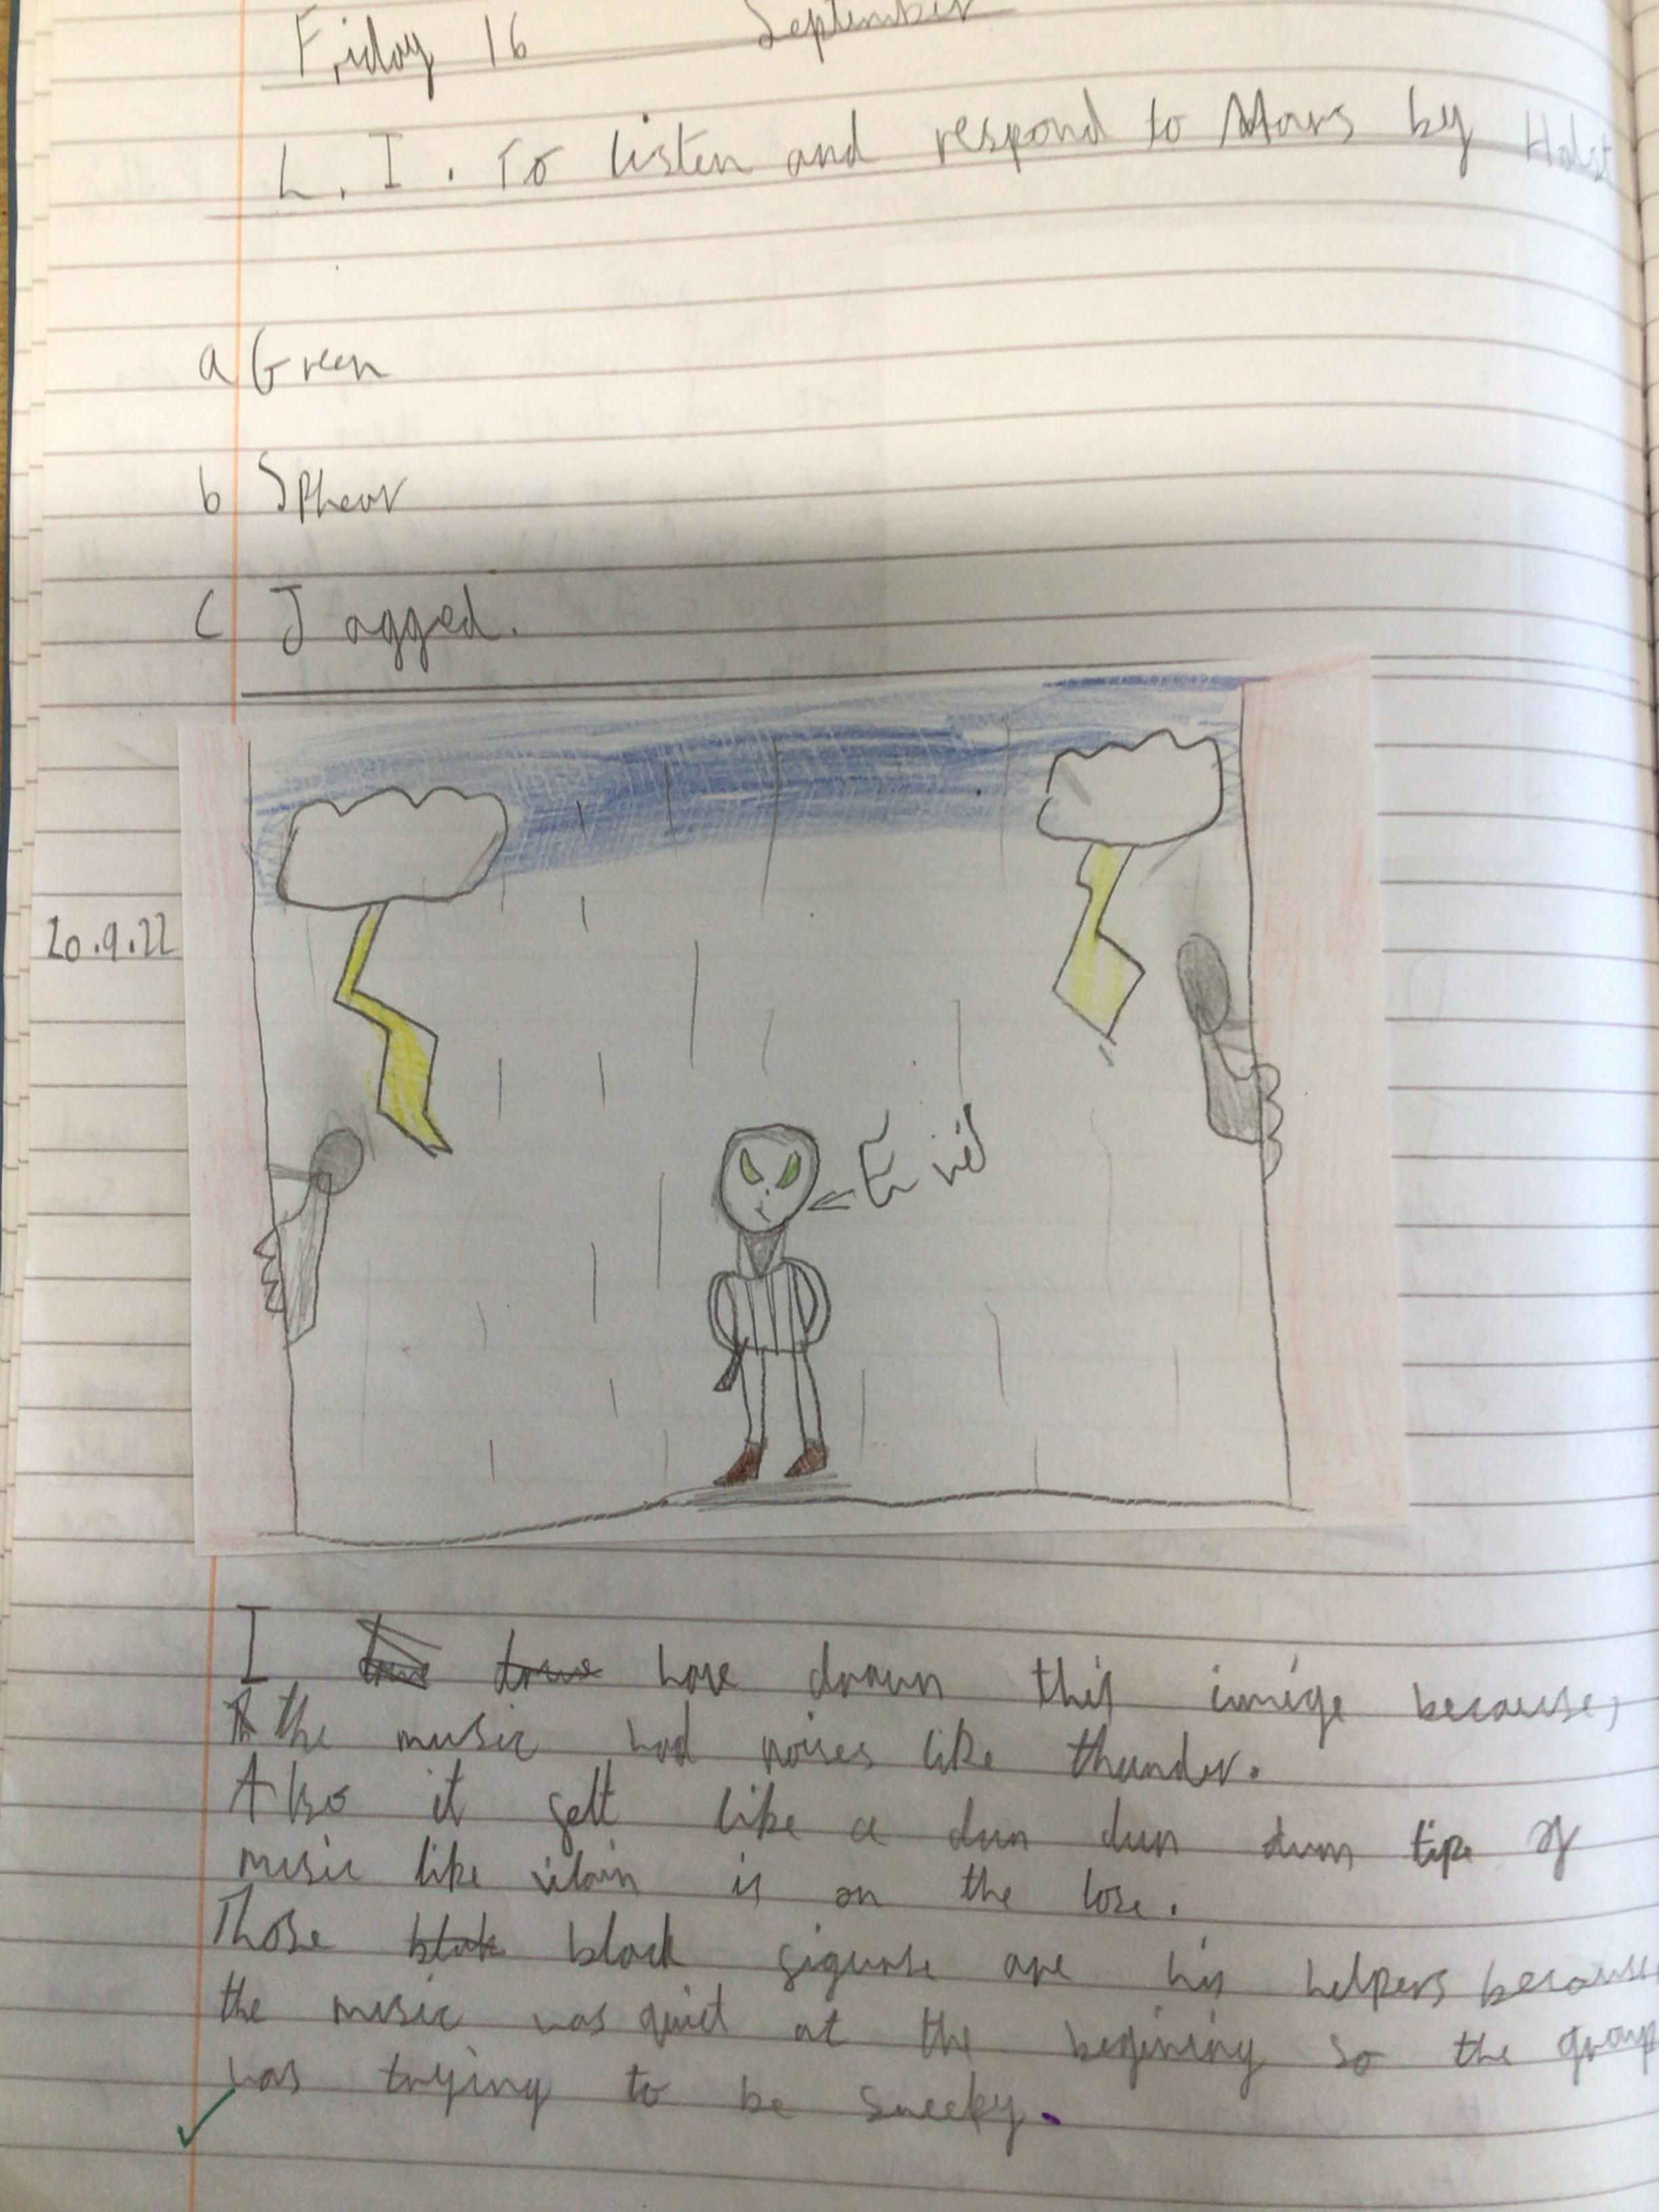 Friday 16 September
L.I. To listen and respond to Mars by Holst
a Green
b Sphear
c Jagged.
20.9.22
Evil
I have drawn this imige because,
the music had noises like thunder.
Also it felt like a dun dun dum tipe of
music like vilain is on the lose.
Those black figurse are his helpers because
the music was quiet at the begining so the group
was trying to be sneeky.